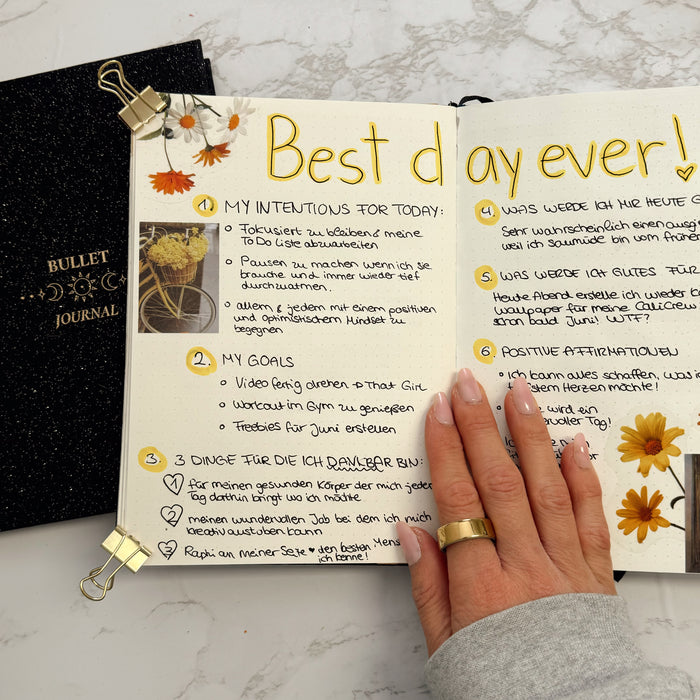 BULLET
JOURNAL
Best day ever!
1. MY INTENTIONS FOR TODAY:
Fokusiert zu bleiben & meine
To Do Liste abzuarbeiten
Pausen zu machen wenn ich sie
brauche und immer wieder tief
durchzuatmen.
allem & jedem mit einem positiven
und optimistischem Mindset zu
begegnen
2. MY GOALS
Video fertig drehen → That Girl
Workout im Gym zu genießen
Freebies für Juni erstellen
3 3 DINGE FÜR DIE ICH DANKBAR BIN:
1 für meinen gesunden Körper der mich jeden
Tag dorthin bringt wo ich möchte
2 meinen wundervollen Job bei dem ich mich
kreativ austoben kann
3 Raphi an meiner Seite ♥ den besten Mens
ich kenne!
4. WAS WERDE ICH MIR HEUTE G
Sehr wahrscheinlich einen
weil ich saumüde bin vom frühen
5. WAS WERDE ICH GUTES FÜR
Heute Abend erstelle ich wieder
wallpaper für meine CaliCrew.
schon bald Juni! WTF?
6. POSITIVE AFFIRMATIONEN
Ich kann alles schaffen, was i
tiefstem Herzen möchte!
wird ein
voller Tag!